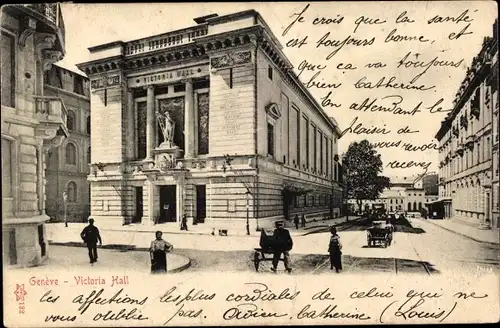 Genève
VICTORIA HALL
Je crois que la santé
est toujours bonne, et
que ça va toujours
bien, Catherine
En attendant le
plaisir de
vous
revoir,
Genève - Victoria Hall
132
les affections les plus cordiales de celui que ne
vous oublie pas. Catherine (Louis)